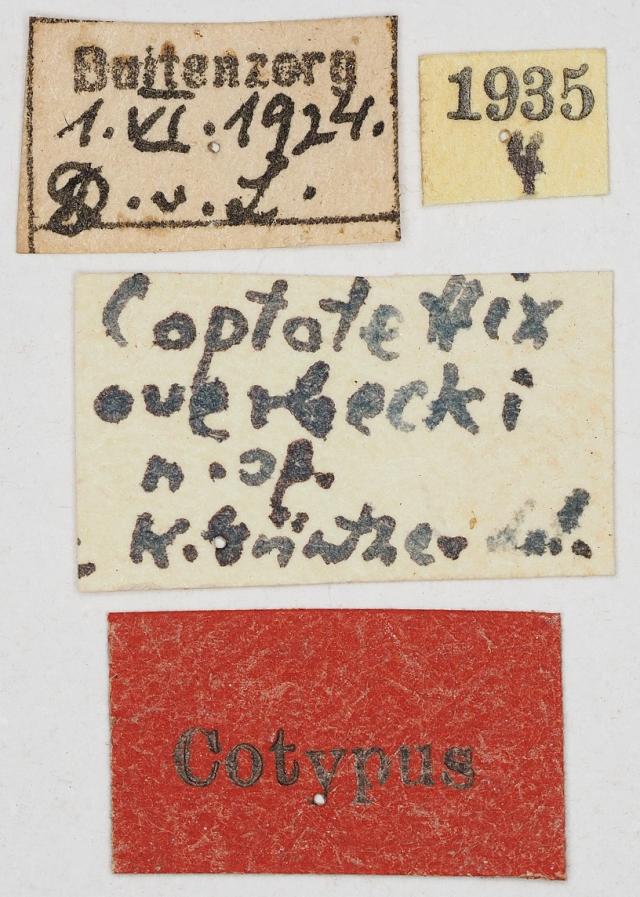 Buitenzorg
1.VI.1924.
O.v.L.
1935
4
Coptotettix
overbecki
n.sp.
K.Günther det.
Cotypus